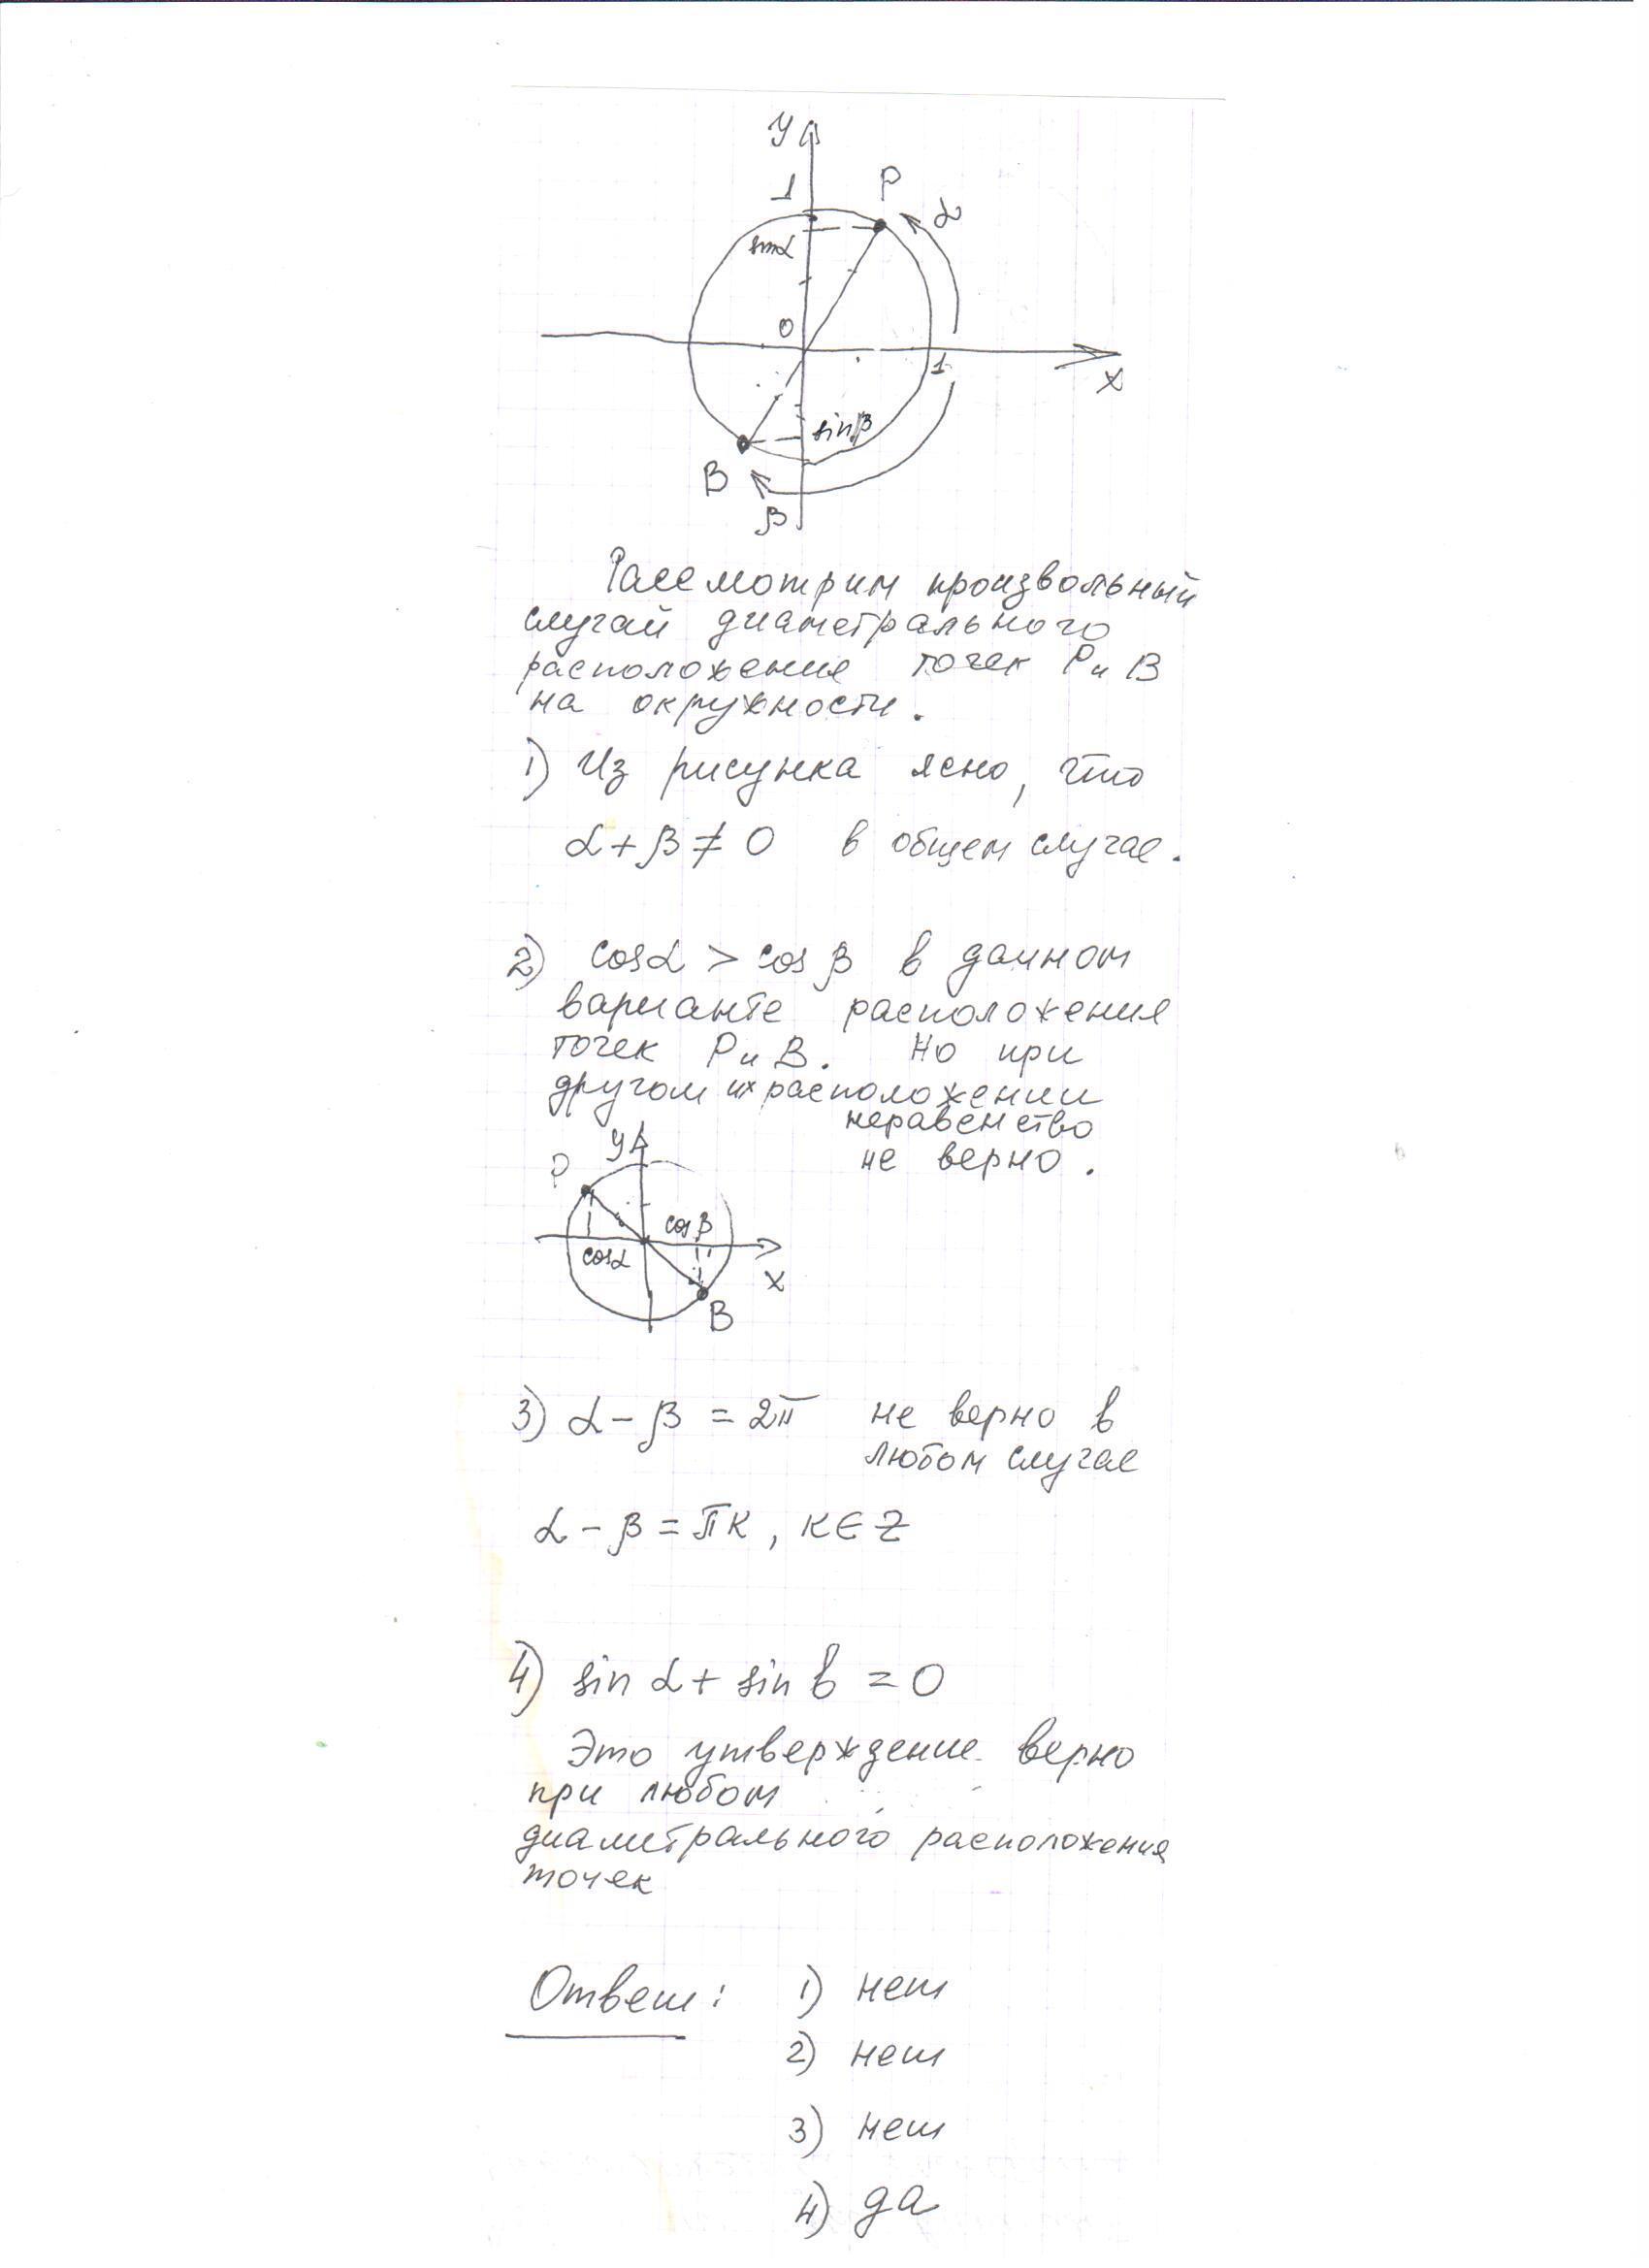 y
1
P
α
sinα
0
1
x
sinβ
B
β
Рассмотрим произвольный
случай диаметрального
расположения точек P и B
на окружности.
1) Из рисунка ясно, что
α + β ≠ 0 в общем случае.
2) cosα > cosβ в данном
варианте расположения
точек P и B. Но при
другом их расположении
неравенство
не верно.
y
P
cosβ
cosα
x
B
3) α - β = 2π не верно в
любом случае
α - β = πк, к ∈ Z
4) sin α + sin b = 0
Это утверждение верно
при любом
диаметрального расположения
точек
Ответ: 1) нет
2) нет
3) нет
4) да